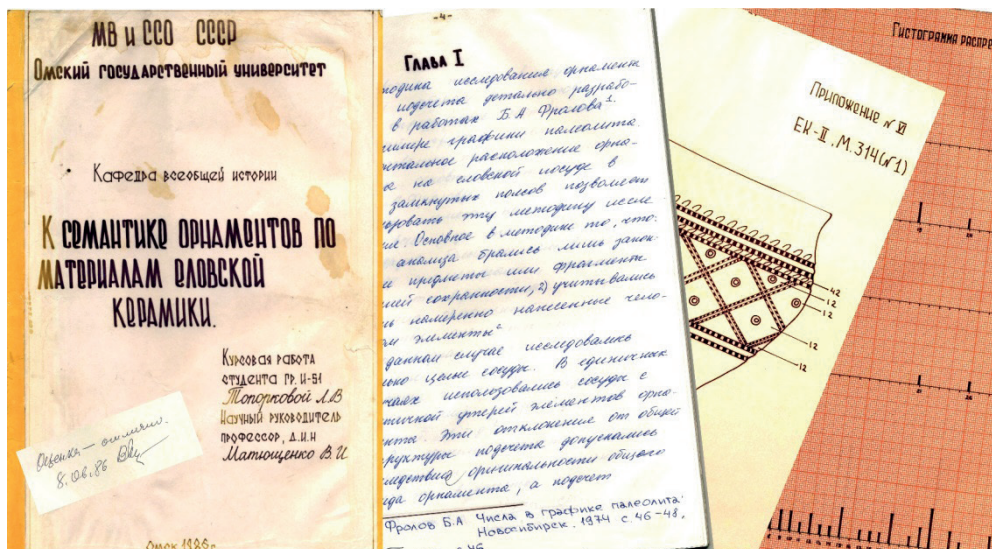 МВ и ССО СССР
Омский государственный университет
Кафедра всеобщей истории
К семантике орнаментов по
материалам еловской
керамики.
Курсовая работа
студента гр. И-51
Топорковой Л.В
Научный руководитель
профессор, д.и.н
Матющенко В.И
Оценка — отлично.
8.06.86
Омск 1986 г.
-4-
Глава I
исследования орнамента
подсчета детально разрабо-
в работах Б.А Фролова¹.
графики палеолита.
расположение орна-
на еловской посуде в
замкнутых поясов позволяет
эту методику иссле
Основное в методике то, что:
анализа брались лишь закон-
предметы или фрагменты
сохранности, 2) учитывались
намеренно нанесенные чело-
элементы²
данном случае исследовались
целые сосуды. В единичных
использовались сосуды с
утерей элементов орна-
Эти отклонение от общей
подсчета допускались
оригинальности общего
орнамента, а подсчет
Фролов Б.А Числа в графике палеолита
Новосибирск. 1974 с. 46-48,
с 46
Приложение № VI
ЕК-II. М. 314 (№1)
42
12
12
12
12
Гистограмма распре